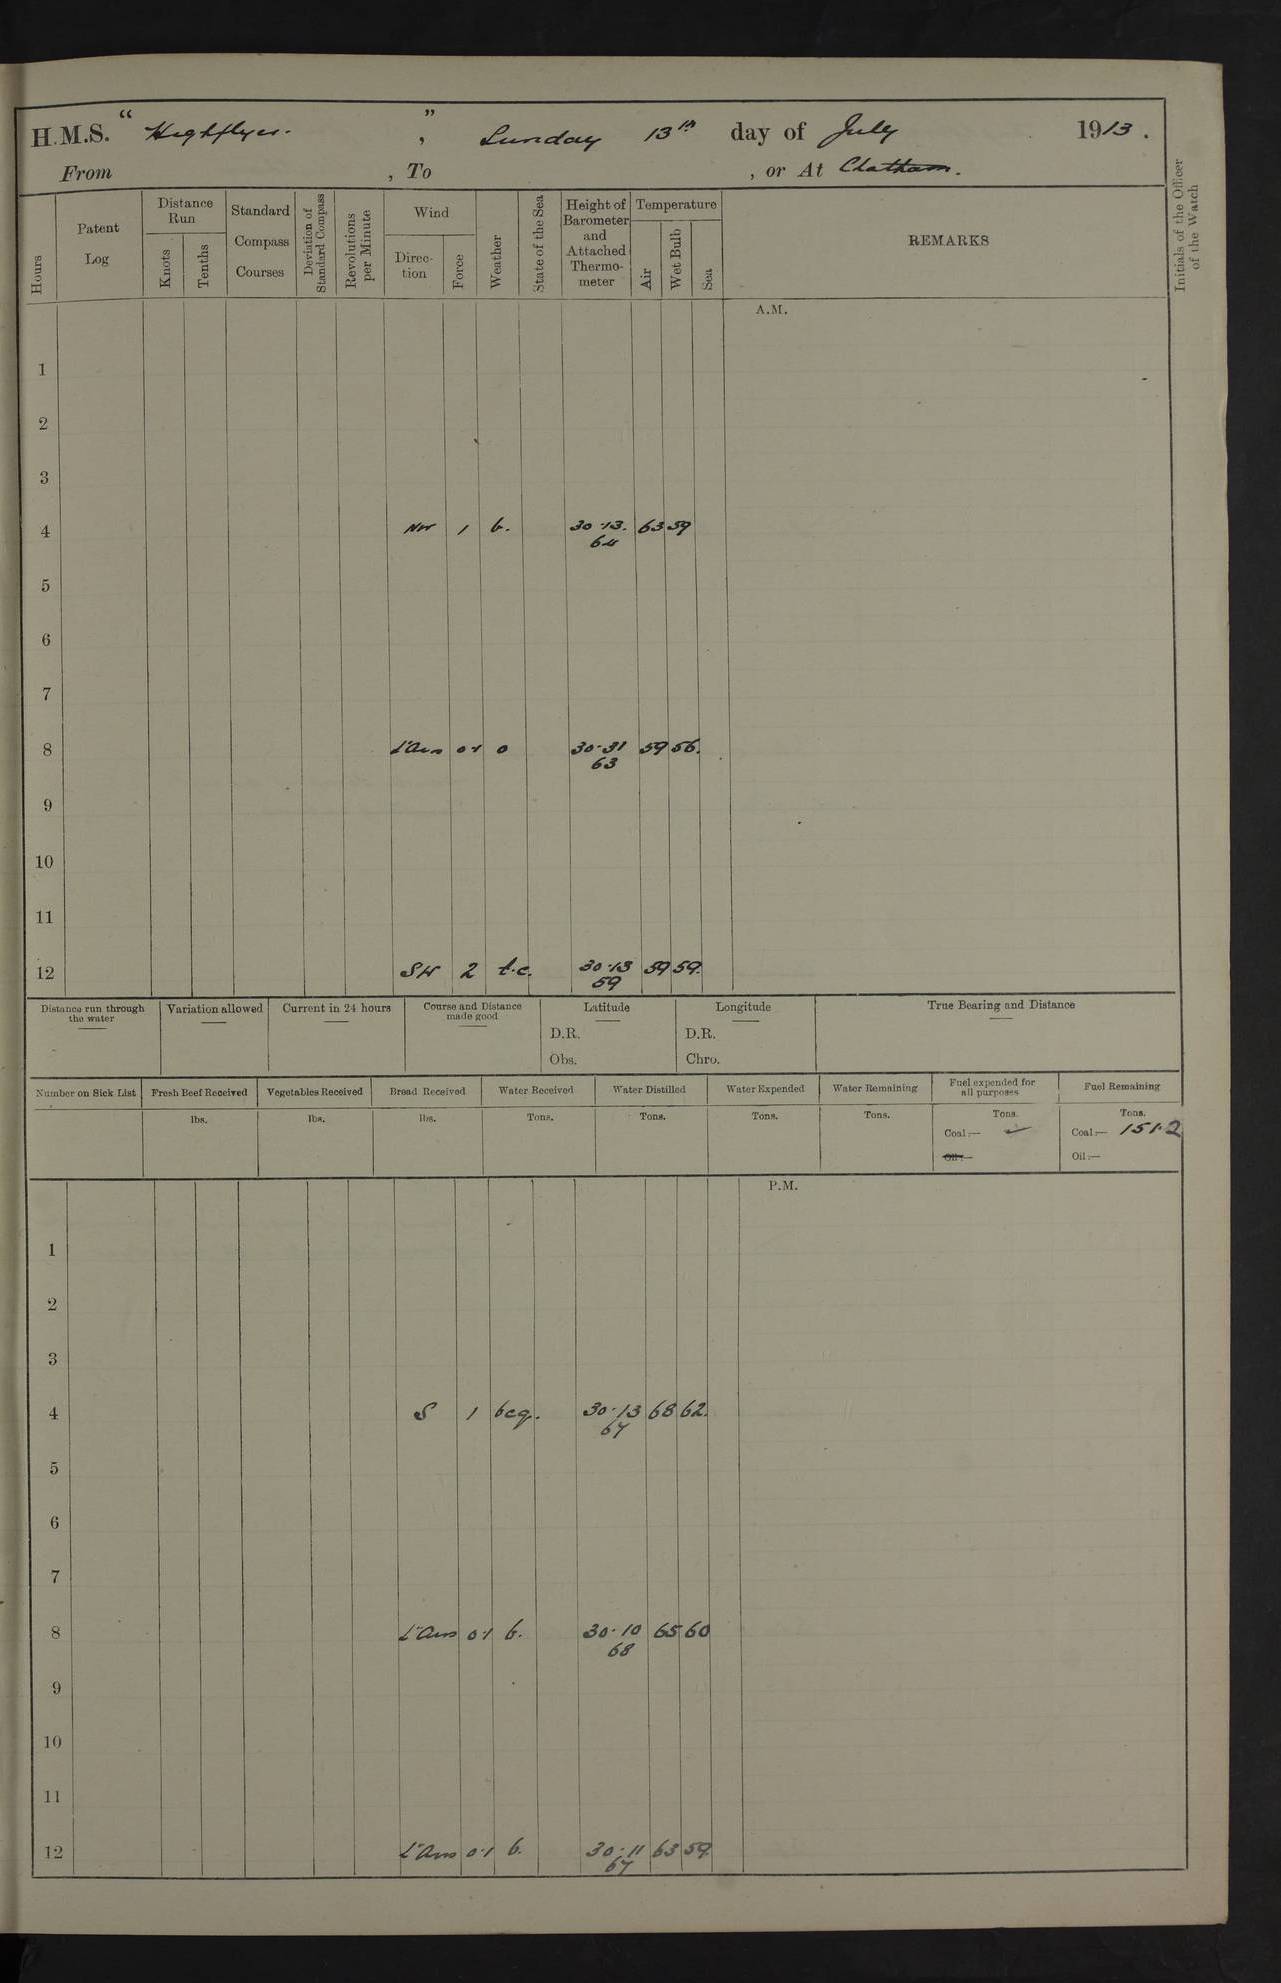 H.M.S. “Highflyer.” , Sunday 13th day of July 1913.
From , To , or At Chatham.
Hours
Patent Log
Distance Run
Knots
Tenths
Standard Compass Courses
Deviation of Standard Compass
Revolutions per Minute
Wind
Direction
Force
Weather
State of the Sea
Height of Barometer and Attached Thermometer
Temperature
Air
Wet Bulb
Sea
REMARKS
Initials of the Officer of the Watch
A.M.
1
2
3
4 NW 1 b. 30·13. 63 59
64
5
6
7
8 Lt Airs 0·1 o 30·31 59 56.
63
9
10
11
12 SW 2 b.c. 30·13 59 59.
59
Distance run through the water
Variation allowed
Current in 24 hours
Course and Distance made good
Latitude
D.R.
Obs.
Longitude
D.R.
Chro.
True Bearing and Distance
Number on Sick List
Fresh Beef Received
lbs.
Vegetables Received
lbs.
Bread Received
lbs.
Water Received
Tons.
Water Distilled
Tons.
Water Expended
Tons.
Water Remaining
Tons.
Fuel expended for all purposes
Tons.
Coal:— ✓
Oil:—
Fuel Remaining
Tons.
Coal:— 151·2
Oil:—
P.M.
1
2
3
4 S 1 bcq. 30·13 68 62.
67
5
6
7
8 Lt Airs 0·1 b. 30·10 65 60
68
9
10
11
12 Lt Airs 0·1 b. 30·11 63 59.
67